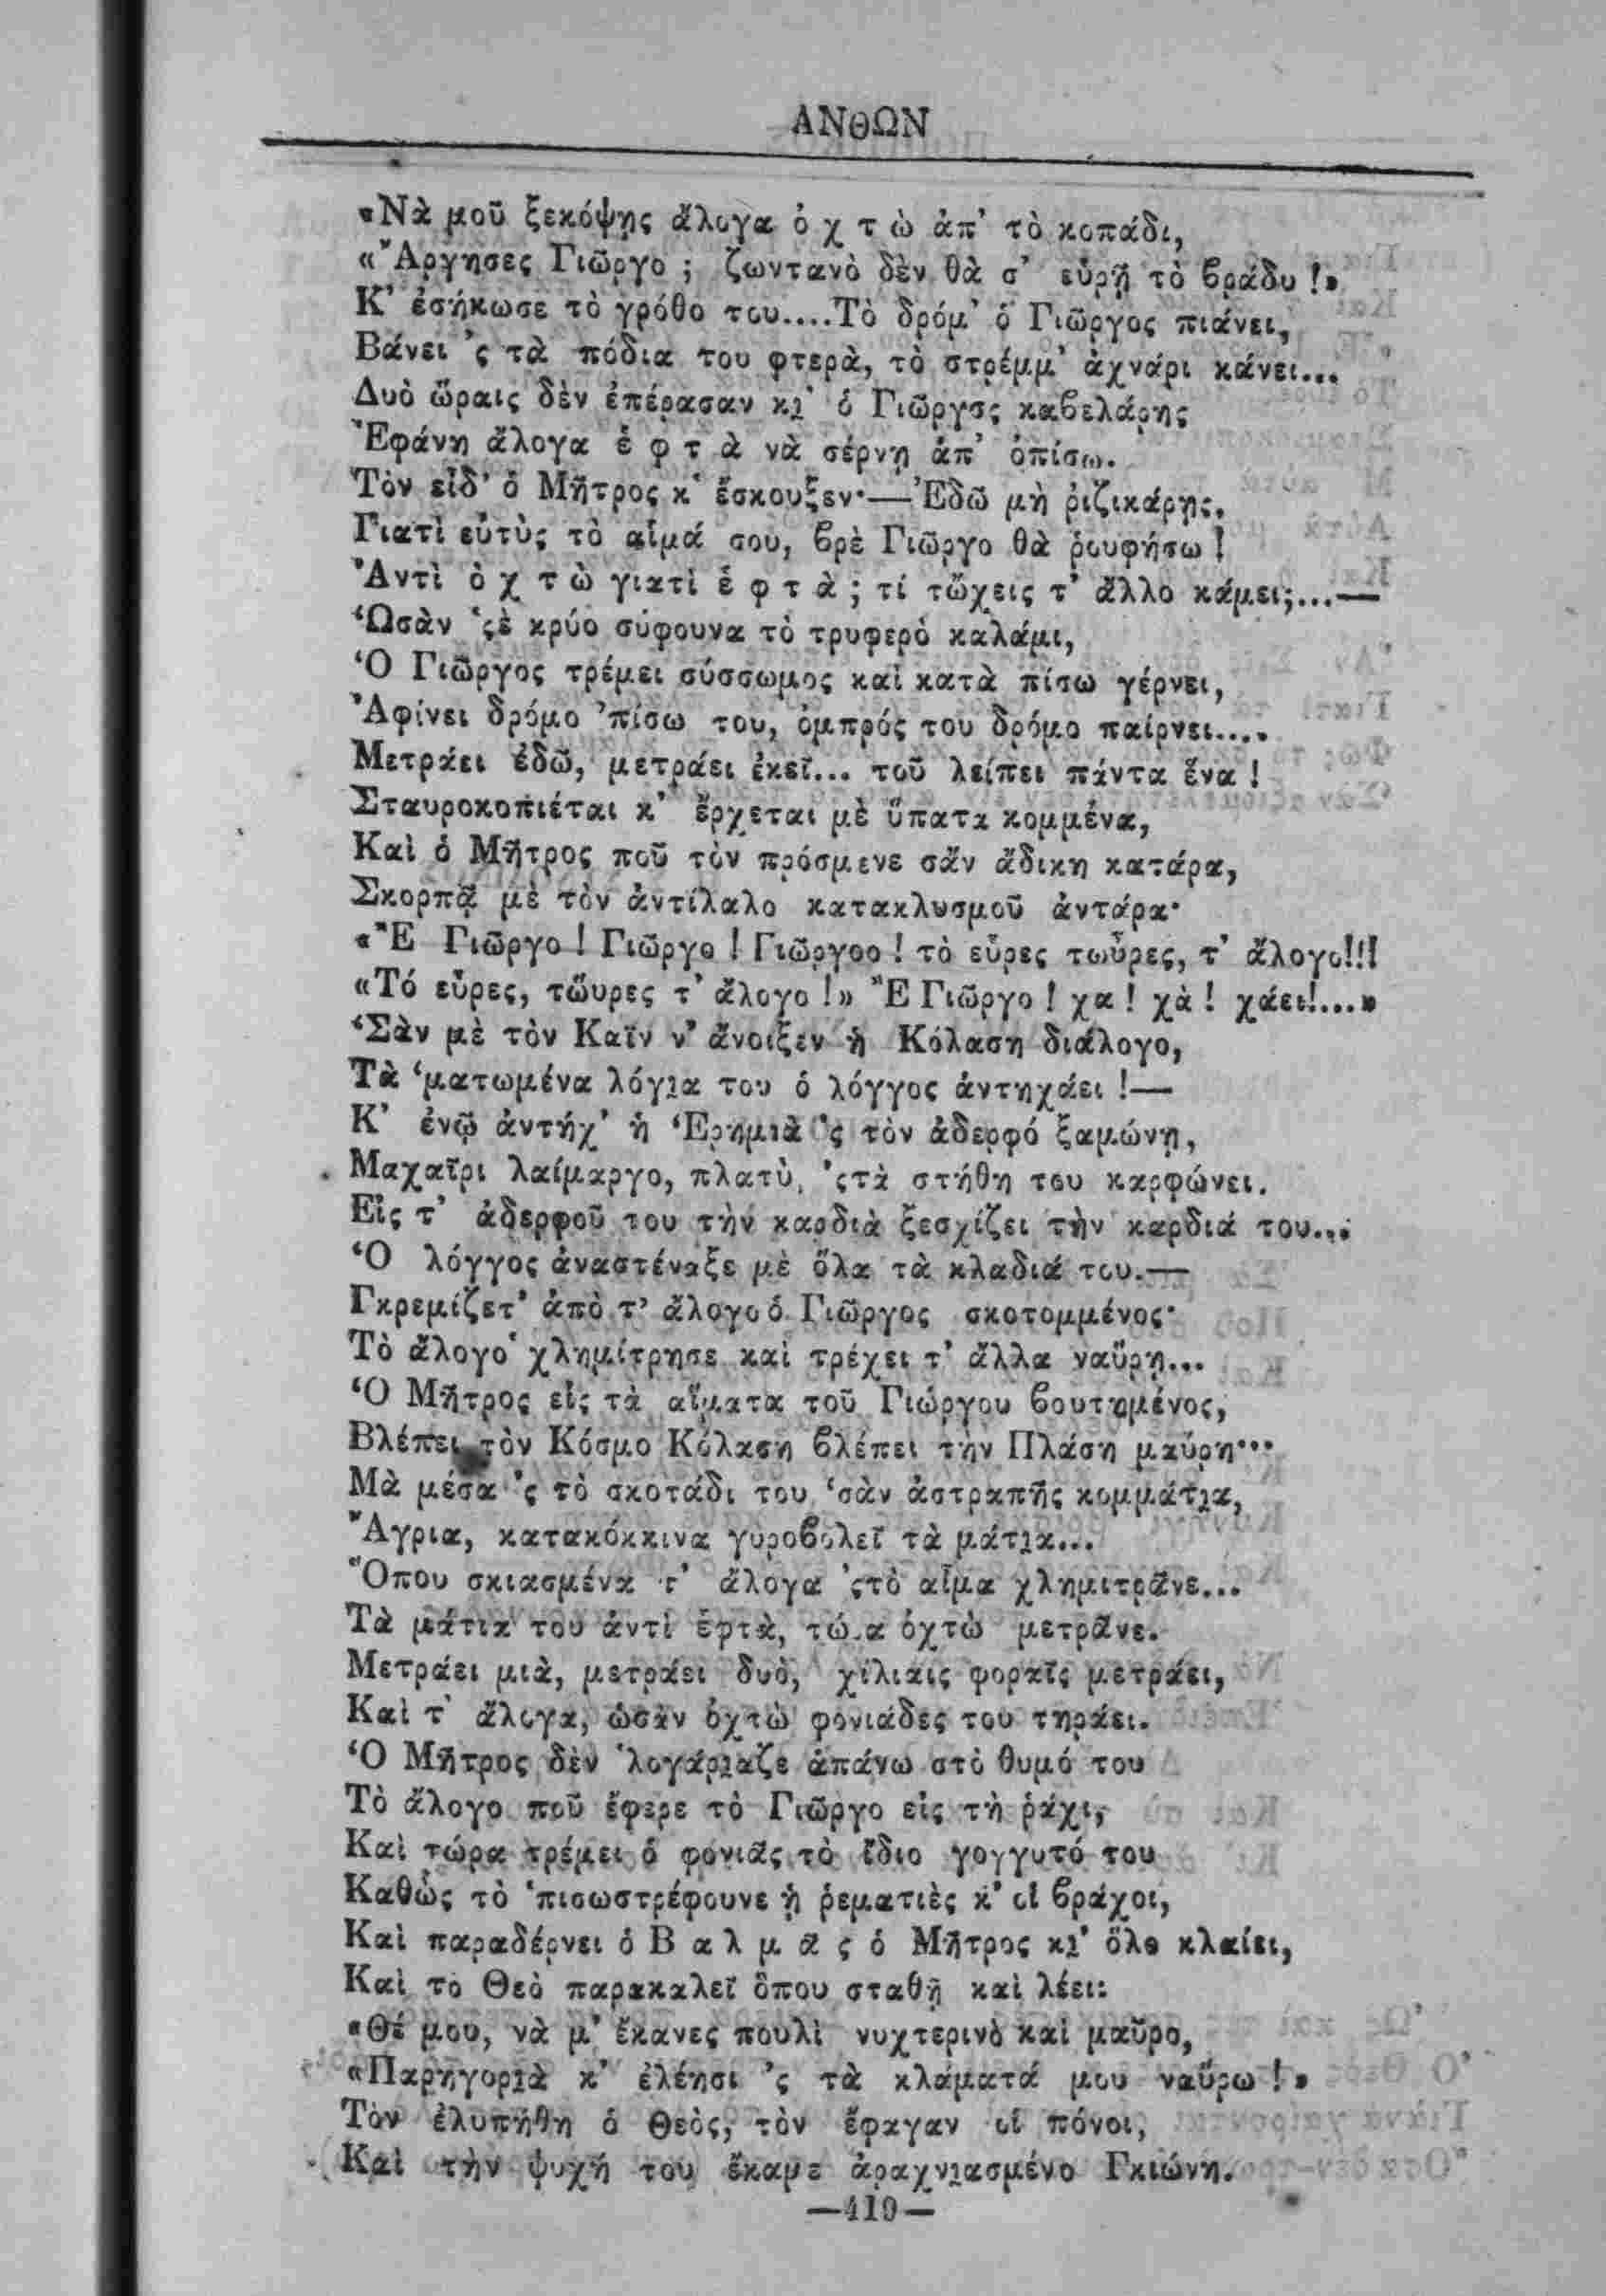 ΑΝΘΩΝ
«Νὰ μοῦ ξεκόψῃς ἄλογα ὀ χ τ ὼ ἀπ’ τὸ κοπάδι,
«Ἄργησες Γιῶργο ; ζωντανὸ δὲν θὰ σ’ εὑρῇ τὸ βράδυ !»
Κ’ ἐσήκωσε τὸ γρόθο του....Τὸ δρόμ’ ὁ Γιῶργος πιάνει,
Βάνει ’ς τὰ πόδια του φτερὰ, τὸ στρέμμ’ ἀχνάρι κάνει...
Δυὸ ὥραις δὲν ἐπέρασαν κι’ ὁ Γιῶργος καβελάρης
Ἐφάνη ἄλογα ἑ φ τ ὰ νὰ σέρνῃ ἀπ’ ὀπίσω.
Τὸν εἶδ’ ὁ Μῆτρος κ’ ἔσκουξεν·—Ἐδῶ μὴ ῥιζικάρῃς,
Γιατὶ εὐτὺς τὸ αἷμά σου, βρὲ Γιῶργο θὰ ῥουφήσω !
Ἀντὶ ὀ χ τ ὼ γιατὶ ἑ φ τ ὰ ; τί τὤχεις τ’ ἄλλο κάμει;...—
Ὡσὰν ’ςὲ κρύο σύφουνα τὸ τρυφερὸ καλάμι,
Ὁ Γιῶργος τρέμει σύσσωμος καὶ κατὰ πίσω γέρνει,
Ἀφίνει δρόμο ’πίσω του, ὀμπρός του δρόμο παίρνει....
Μετράει ἐδῶ, μετράει ἐκεῖ... τοῦ λείπει πάντα ἕνα !
Σταυροκοπιέται κ’ ἔρχεται μὲ ὕπατα κομμένα,
Καὶ ὁ Μῆτρος ποῦ τὸν πρόσμενε σἄν ἄδικη κατάρα,
Σκορπᾷ μὲ τὸν ἀντίλαλο κατακλυσμοῦ ἀντάρα·
«Ἒ Γιῶργο ! Γιῶργο ! Γιῶργοο ! τὸ εὗρες τωὗρες, τ’ ἄλογο!!!
«Τό εὗρες, τὥυρες τ’ ἄλογο !» Ἒ Γιῶργο ! χα ! χὰ ! χάει!....»
‘Σὰν μὲ τὸν Καϊν ν’ ἄνοιξεν ἡ Κόλαση διάλογο,
Τὰ ‘ματωμένα λόγια του ὁ λόγγος ἀντηχάει !—
Κ’ ἐνῷ ἀντήχ’ ἡ Ἐρημιὰ ’ς τὸν ἀδερφό ξαμώνῃ,
Μαχαῖρι λαίμαργο, πλατὺ, ’ςτὰ στήθη του καρφώνει.
Εἰς τ’ ἀδερφοῦ του τὴν καρδιὰ ξεσχίζει τὴν καρδιά του...
Ὁ λόγγος ἀναστέναξε μὲ ὅλα τὰ κλαδιά του.—
Γκρεμίζετ’ ἀπὸ τ’ ἄλογο ὁ Γιῶργος σκοτομμένος·
Τὸ ἄλογο χλημίτρησε καὶ τρέχει τ’ ἄλλα ναὔρῃ...
Ὁ Μῆτρος εἰς τὰ αἵματα τοῦ Γιώργου βουτημένος,
Βλέπει τὸν Κόσμο Κόλαση βλέπει τὴν Πλάση μαύρη...
Μὰ μέσα ’ς τὸ σκοτάδι του ‘σὰν ἀστραπῆς κομμάτια,
Ἄγρια, κατακόκκινα γυροβολεῖ τὰ μάτια...
Ὅπου σκιασμένα τ’ ἄλογα ’ςτὸ αἷμα χλημιτρᾶνε...
Τὰ μάτια του ἀντὶ ἑφτὰ, ὀχτὼ μετρᾶνε.
Μετράει μιὰ, μετράει δυὸ, χίλιαις φοραῖς μετράει,
Καὶ τ’ ἄλογα, ὡσὰν ὀχτὼ φονιάδες του τηράει.
Ὁ Μῆτρος δὲν ’λογάριαζε ἀπάνω στὸ θυμό του
Τὸ ἄλογο ποῦ ἔφερε τὸ Γιῶργο εἰς τὴ ῥάχι,
Καὶ τώρα τρέμει ὁ φονιᾶς τὸ ἴδιο γογγυτό του
Καθὼς τὸ ’πισωστρέφουνε ᾑ ῥεματιὲς κ’ οἱ βράχοι,
Καὶ παραδέρνει ὁ Β α λ μ ᾶ ς ὁ Μῆτρος κι’ ὅλο κλαίει,
Καὶ τὸ Θεὸ παρακαλεῖ ὅπου σταθῇ καὶ λέει:
«Θέ μου, νὰ μ’ ἔκανες πουλὶ νυχτερινὸ καὶ μαῦρο,
«Παρηγοριὰ κ’ ἐλέησι ’ς τὰ κλάματά μου ναὔρω !»
Τὸν ἐλυπήθη ὁ Θεὸς, τὸν ἔφαγαν οἱ πόνοι,
Καὶ τὴν ψυχή του ἔκαμε ἀραχνιασμένο Γκιώνη.
—419—